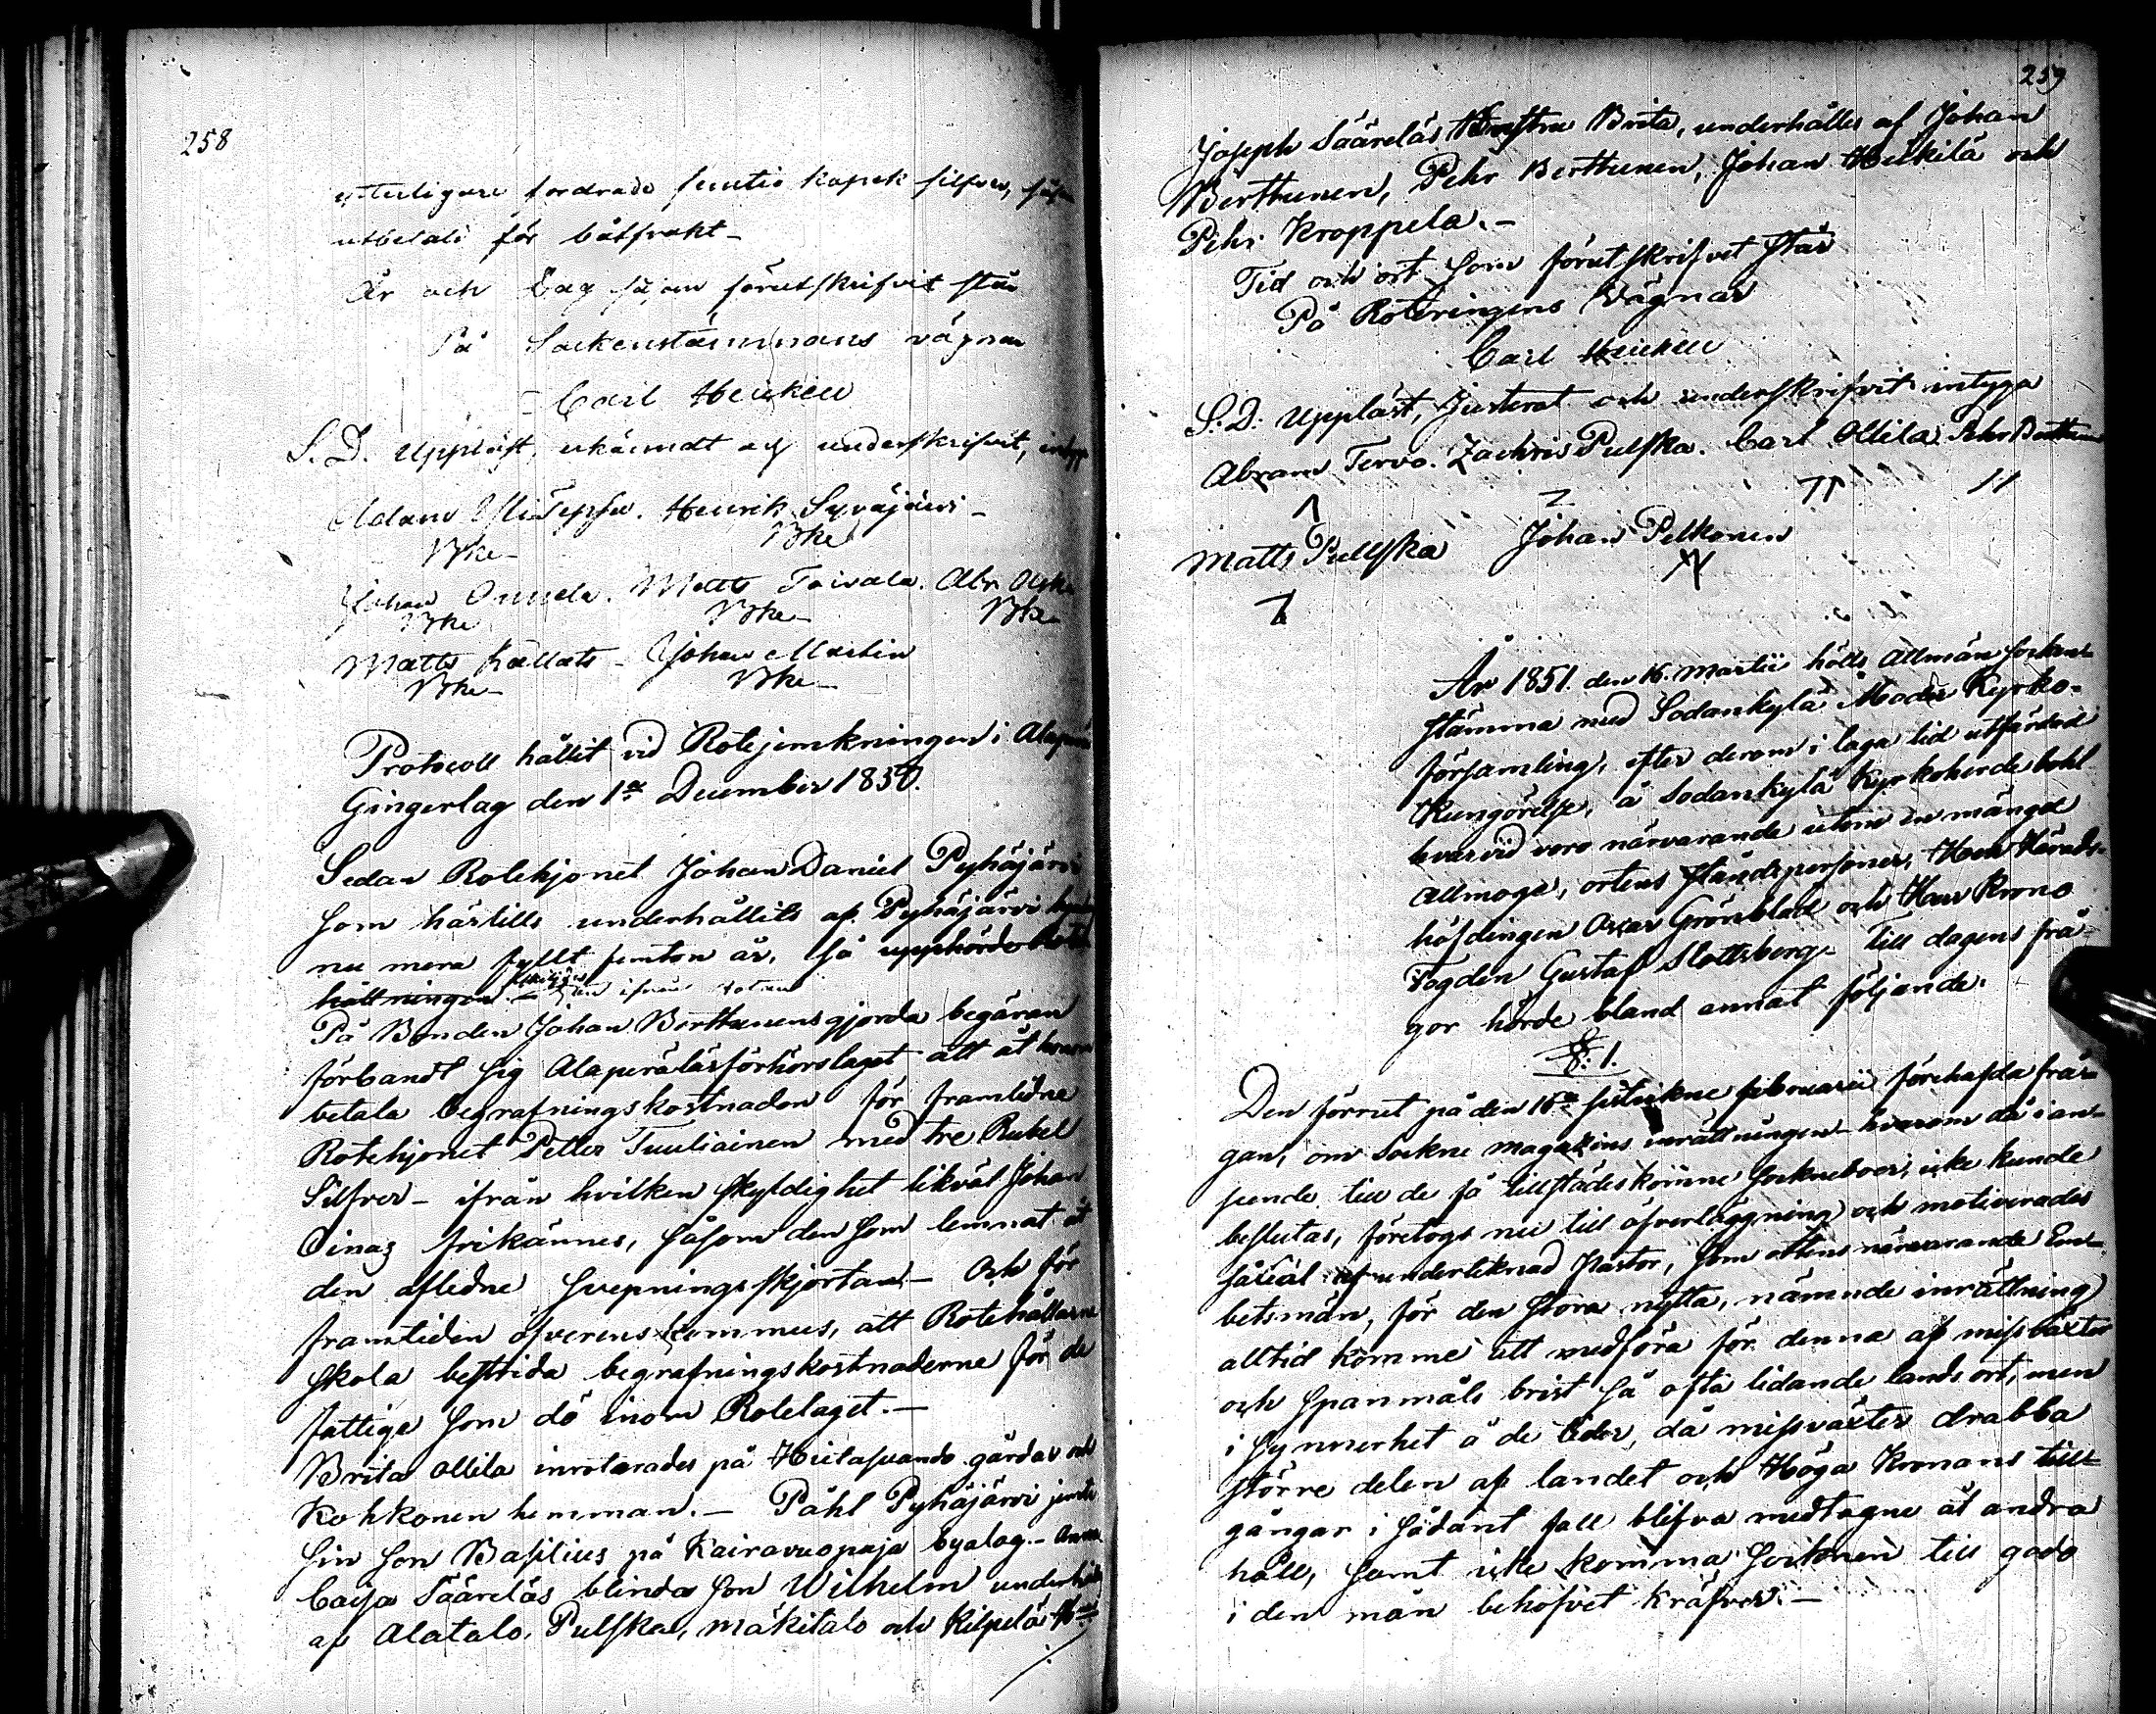 258
ytterligare fordrade femtio kopek silfver,
utbetalt för båtfrakt–
År och Dag såsom förutskrifvit står
På Sockenstämmans vägnar
Carl Heickell
S. D. Uppläst, erkändt och underskrifvit,
Adam Henrik Syväjärvi –
Bke – Bke
Johan Onnela. Matts Toivala. Abr.
Bke Bke – Bke –
Matts Kallats – Johan Martin
Bke – Bke –
Protocoll hållit vid Rotejemkningen i
Gingerlag den 1ta December 1850.
Sedan Rotehjonet Johan Daniel Pyhäjärvi
som härtills underhållits af Pyhäjärvi
nu mera fyllt femton år, så upphörde
hållningen
På Bonden Johan Berttunens gjorda begäran
förbandt sig Alaperä läsförhörslaget att
betala begrafningskostnaden för framlidne
Rotehjonet Petter Tuuliainen med tre Rubel
Silfver – ifrån hvilken skyldighet likväl Johan
Oinas frikännes, såsom den som lemnat åt
den aflidne svepningsskjortan – Och för
framtiden öfverenskommes, att Rotehållarne
skola bestrida begrafningskostnaderne för de
fattige som dö inom Rotelaget. –
Brita Ollila inroterades på Hietasuando gårdar och
Kokkonen hemman. – Påhl Pyhäjärvi jemte
sin son Basilius på Kairavuopaja byalag. –
Caisa Säärelas blinda son Wilhelm
af Alatalo, Pulska, Mäkitalo och Kilpelä
259
Joseph Säärelas Hustru Brita, underhålles af Johan
Berttunen, Pehr Berttunen, Johan Heikilä och
Pehr Kroppela. –
Tid och ort som förutskrifvet står
På Roteringens vägnar
Carl Heickell
S. D. Uppläst, Justerat och underskrifvit intyga
Abram Tervo. Zachris Pulska. Carl Ollila. Pehr
Matts Pullska Johan Pelkonen
År 1851. den 16. Martii hölls Allmän Socken-
stämma med Sodankylä Moder Kyrko-
församling, efter derom i laga tid utfärdad
Kungörelse, å Sodankylä Kyrkoherde bohl
hvarvid voro närvarande utom en mängd
Allmoge, ortens ståndspersoner, Herr Härads-
höfdingen Oscar Grönblad och Herr Krono
Fogden Gustaf Slottsberg. Till dagens frå-
gor hörde bland annat följande.
§: 1.
Den förrut på den 16de sistlidne februarii förehafda frå-
gan, om Sockne magazins inrättningen – hvarom då i an-
seende till de få tillstädeskomne Sockneboer, icke kunde
beslutas, företogs nu till öfverläggning och motiverades
såväl af undertecknad Pastor, som ortens närvarande Em-
betsmän, för den stora nytta, nämnde inrättning
alltid komme att medföra för denna af missväxter
och Spanmåls brist så ofta lidande lands ort, men
i synnerhet å de tider, då missväxter drabba
större delen af landet och Höga Kronans till-
gångar i sådant fall blifva medtagne åt andra
håll, samt icke komma Socknen till godo
i den mån behofvet kräfver. –